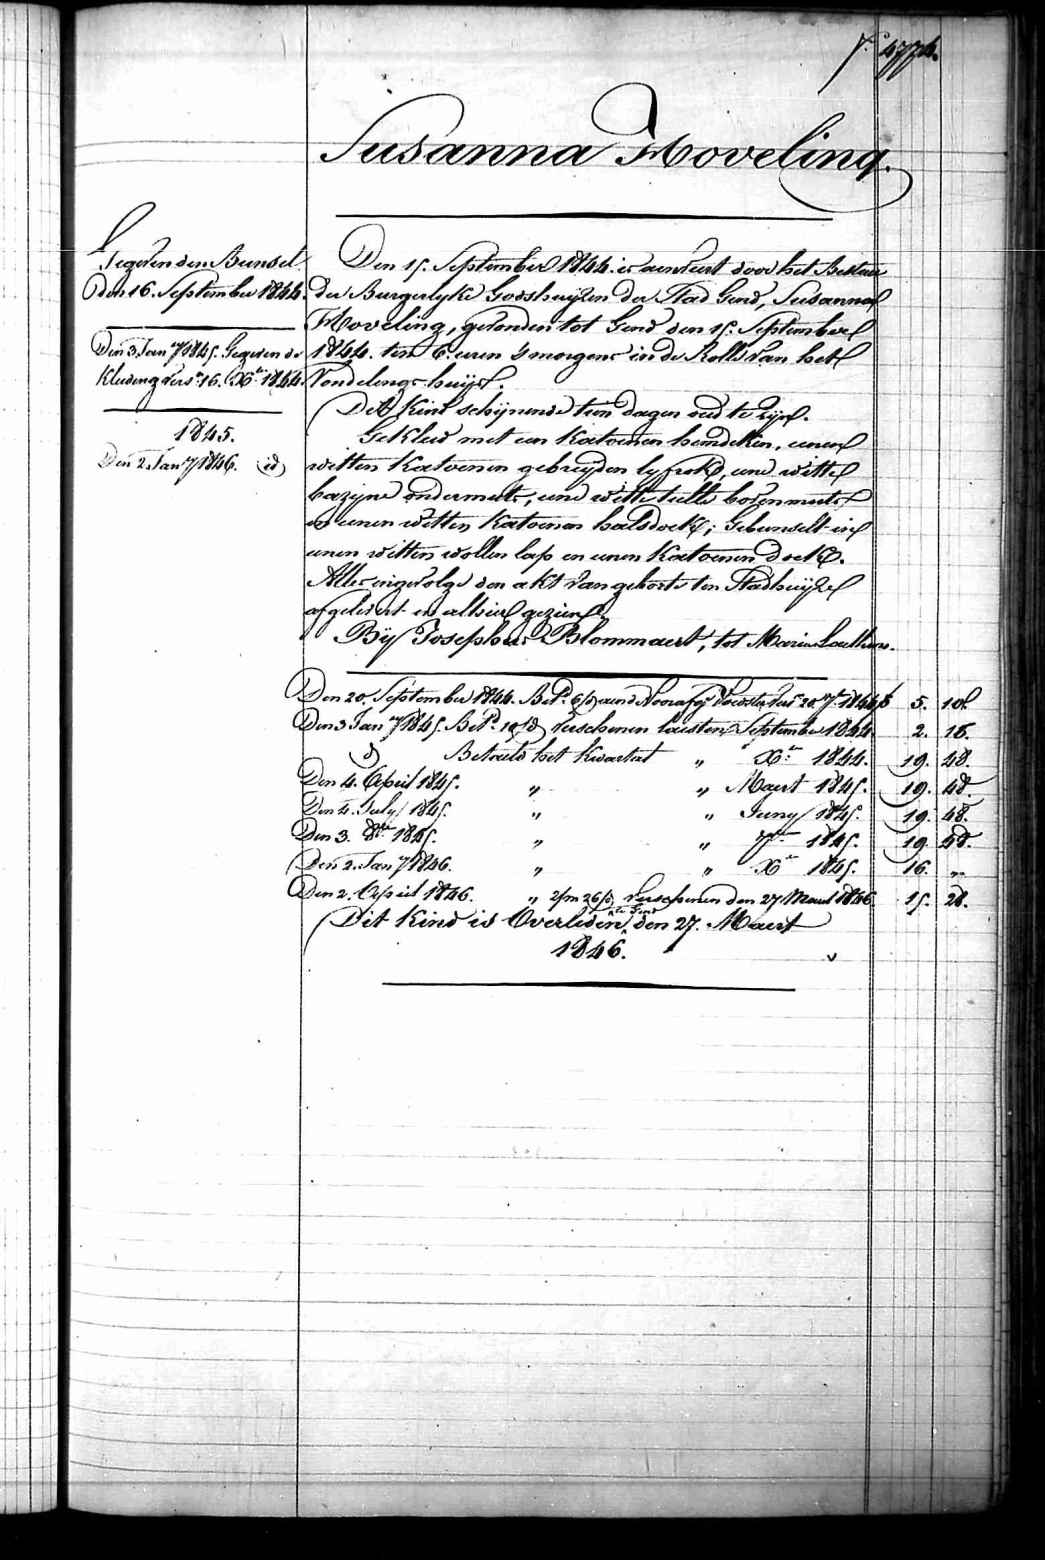 f.° 4774.
Susanna Hoveling.
Gegeven den Bunsel
Den 16. September 1844.
Den 3. Jan.y 1845. Gegeven de
Kleding vers.n 16. Xb.r 1844.
1845.
Den 2. Jan.y 1846. id
Den 15. September 1844. is aenveert door het Bestuer
der Burgerlyke Godshuyzen der Stad Gend, Susanna
Hoveling, gevonden tot Gend den 15. September
1844. ten 6. uren 's morgens in de Rolle van het
Vondelings huys.
Dit Kind schynende tien dagen oud te zyn.
Gekleed met een Katoenen hemdeken, eenen
witten Katoenen gebreyden lyfrok, eene witte
bazyne ondermuts, eene witte tulle bovenmuts
en eenen witten Katoenen halsdoek; Gebunselt in
eenen witten wollen lap en eenen Katoenen doek.
Alles ingevolge den akt van geboorte ten Stadhuyze
afgelevert en alhier gezien.
By Josephus Blommaert, tot Maria
Den 20. September 1844. Bet.d 6/d aend Voorafg. Voedster vers. 20. 7b.r 1844 f 5. 10.
Den 3 Jan.y 1845. Bet.d 10/d verschenen laesten September 1844. 2. 16.
d° Betaeld het Kwartael „ Xb.r 1844. 19. 48.
Den 4. April 1845. „ „ Maert 1845. 19. 48.
Den 4. July 1845. „ „ Juny 1845. 19. 48.
Den 3. 8b.r 1845. „ „ 7b.r 1845. 19. 48.
Den 2. Jan.y 1846. „ „ Xb.r 1845. 16. „
Den 2. April 1846. „ 2/m 26/d verschenen den 27 Maert 1846. 15. 28.
Dit Kind is Overleden te Gend den 27. Maert
1846.